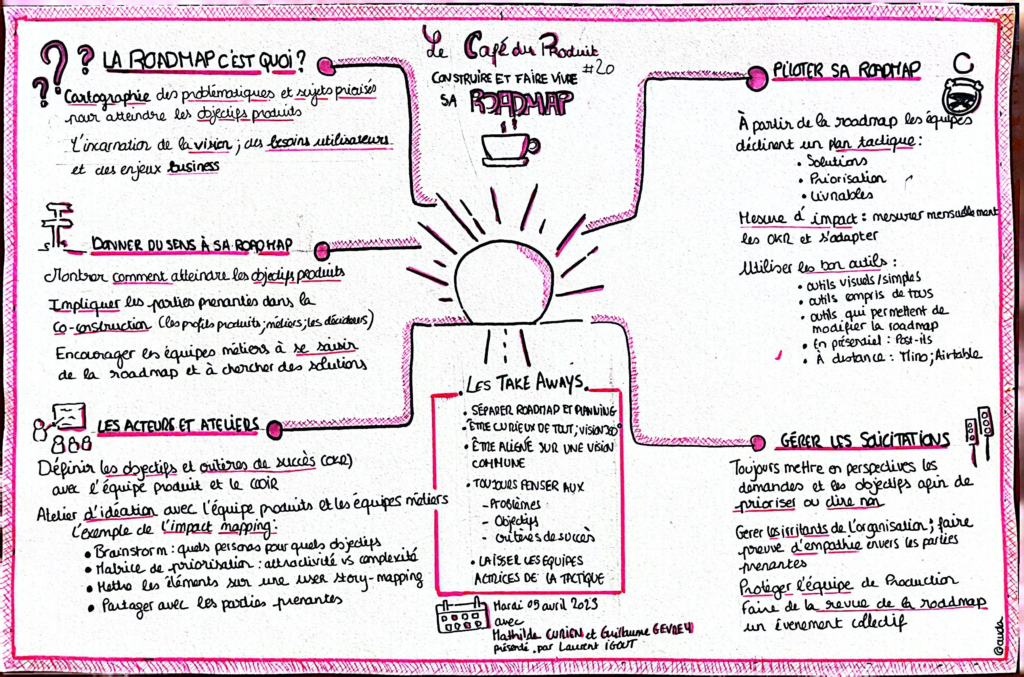 Le Café du Produit
#20
CONSTRUIRE ET FAIRE VIVRE
SA ROADMAP
LA ROADMAP C'EST QUOI ?
Cartographie des problématiques et sujets priorisés
pour atteindre les objectifs produits
L'incarnation de la vision ; des besoins utilisateurs
et des enjeux business
DONNER DU SENS À SA ROADMAP
Montrer comment atteindre les objectifs produits
Impliquer les parties prenantes dans la
co-construction (les profils produits ; métiers ; les décideurs)
Encourager les équipes métiers à se saisir
de la roadmap et à chercher des solutions
LES ACTEURS ET ATELIERS
Définir les objectifs et critères de succès (OKR)
avec l'équipe produit et le CODIR
Atelier d'idéation avec l'équipe produits et les équipes métiers
L'exemple de l'impact mapping :
• Brainstorm : quels personas pour quels objectifs
• Matrice de priorisation : attractivité vs complexité
• Mettre les éléments sur une user story-mapping
• Partager avec les parties prenantes
LES TAKE AWAYS
• SÉPARER ROADMAP ET PLANNING
• ÊTRE CURIEUX DE TOUT ; VISION 360°
• ÊTRE ALIGNÉ SUR UNE VISION
COMMUNE
• TOUJOURS PENSER AUX
- Problèmes
- Objectifs
- critères de succès
• LAISSER LES EQUIPES
ACTRICES DE LA TACTIQUE
Mardi 05 avril 2023
avec
Mathilde CURIEN et Guillaume GEVREY
présenté par Laurent IGOUT
PILOTER SA ROADMAP
À partir de la roadmap les équipes
déclinent un plan tactique :
• Solutions
• Priorisation
• Livrables
Mesure d'impact : mesurer mensuellement
les OKR et s'adapter
Utiliser les bon outils :
• outils visuels/simples
• outils compris de tous
• outils qui permettent de
modifier la roadmap
• En présentiel : Post-its
• À distance : Miro ; Airtable
GÉRER LES SOLICITATIONS
Toujours mettre en perspectives les
demandes et les objectifs afin de
prioriser ou dire non
Gérer les irritants de l'organisation ; faire
preuve d'empathie envers les parties
prenantes
Protéger l'équipe de Production
Faire de la revue de la roadmap
un évenement collectif